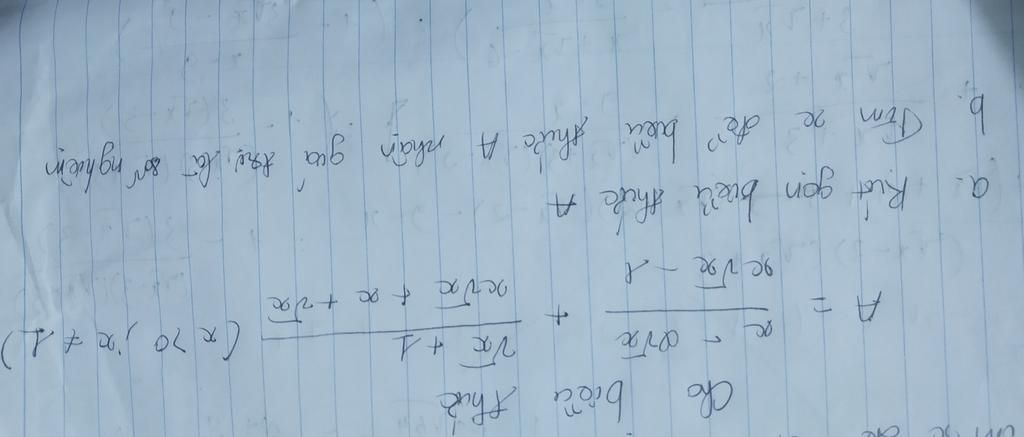 Cho biểu thức
A = \frac{x - 2\sqrt{x}}{x\sqrt{x} - 1} + \frac{\sqrt{x} + 1}{x\sqrt{x} + x + \sqrt{x}} (x > 0, x ≠ 1)
a. Rút gọn biểu thức A
b. Tìm x để biểu thức A nhận giá trị là số nghiệm